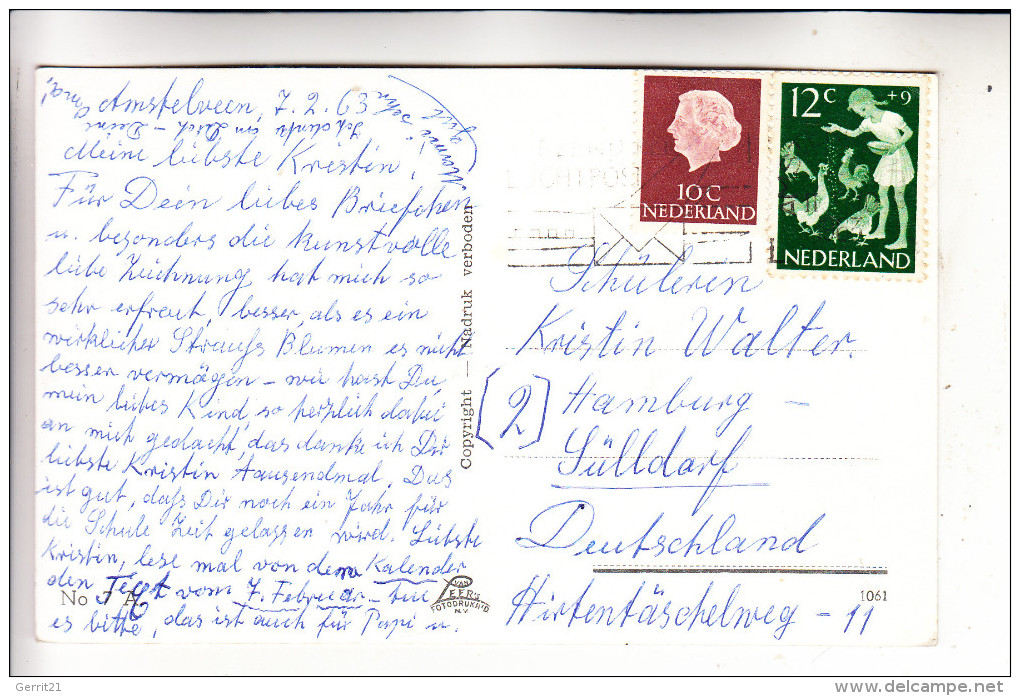 Amstelveen, 7.2.63
Meine liebste Kristin!
Für Dein liebes Briefchen
u. besonders die kunstvolle
liebe Zeichnung hat mich so
sehr erfreut, besser, als es ein
wirklicher Strauß Blumen es nicht
besser vermögen – wie hast Du,
mein liebes Kind, so herzlich dabei
an mich gedacht, das danke ich Dir
liebste Kristin tausendmal. Das
ist gut, daß Dir noch ein Jahr für
die Schule Zeit gelassen wird. Liebste
Kristin, lese mal von dem Kalender
den Text vom 7. Februar – tue
es bitte, das ist auch für Papi u.
Mami sehr
gut
Ich denke an Dich – Deine
Oma!
No 7 A
Copyright — Nadruk verboden
VAN
LEER'S
FOTODRUKIND
N.V.
1061
10 C
NEDERLAND
12 C +9
NEDERLAND
LUCHTPOST
Schülerin
Kristin Walter.
(2) Hamburg –
Sülldorf
Deutschland
Hirtentäschelweg – 11
Gerrit21
delcampe.net